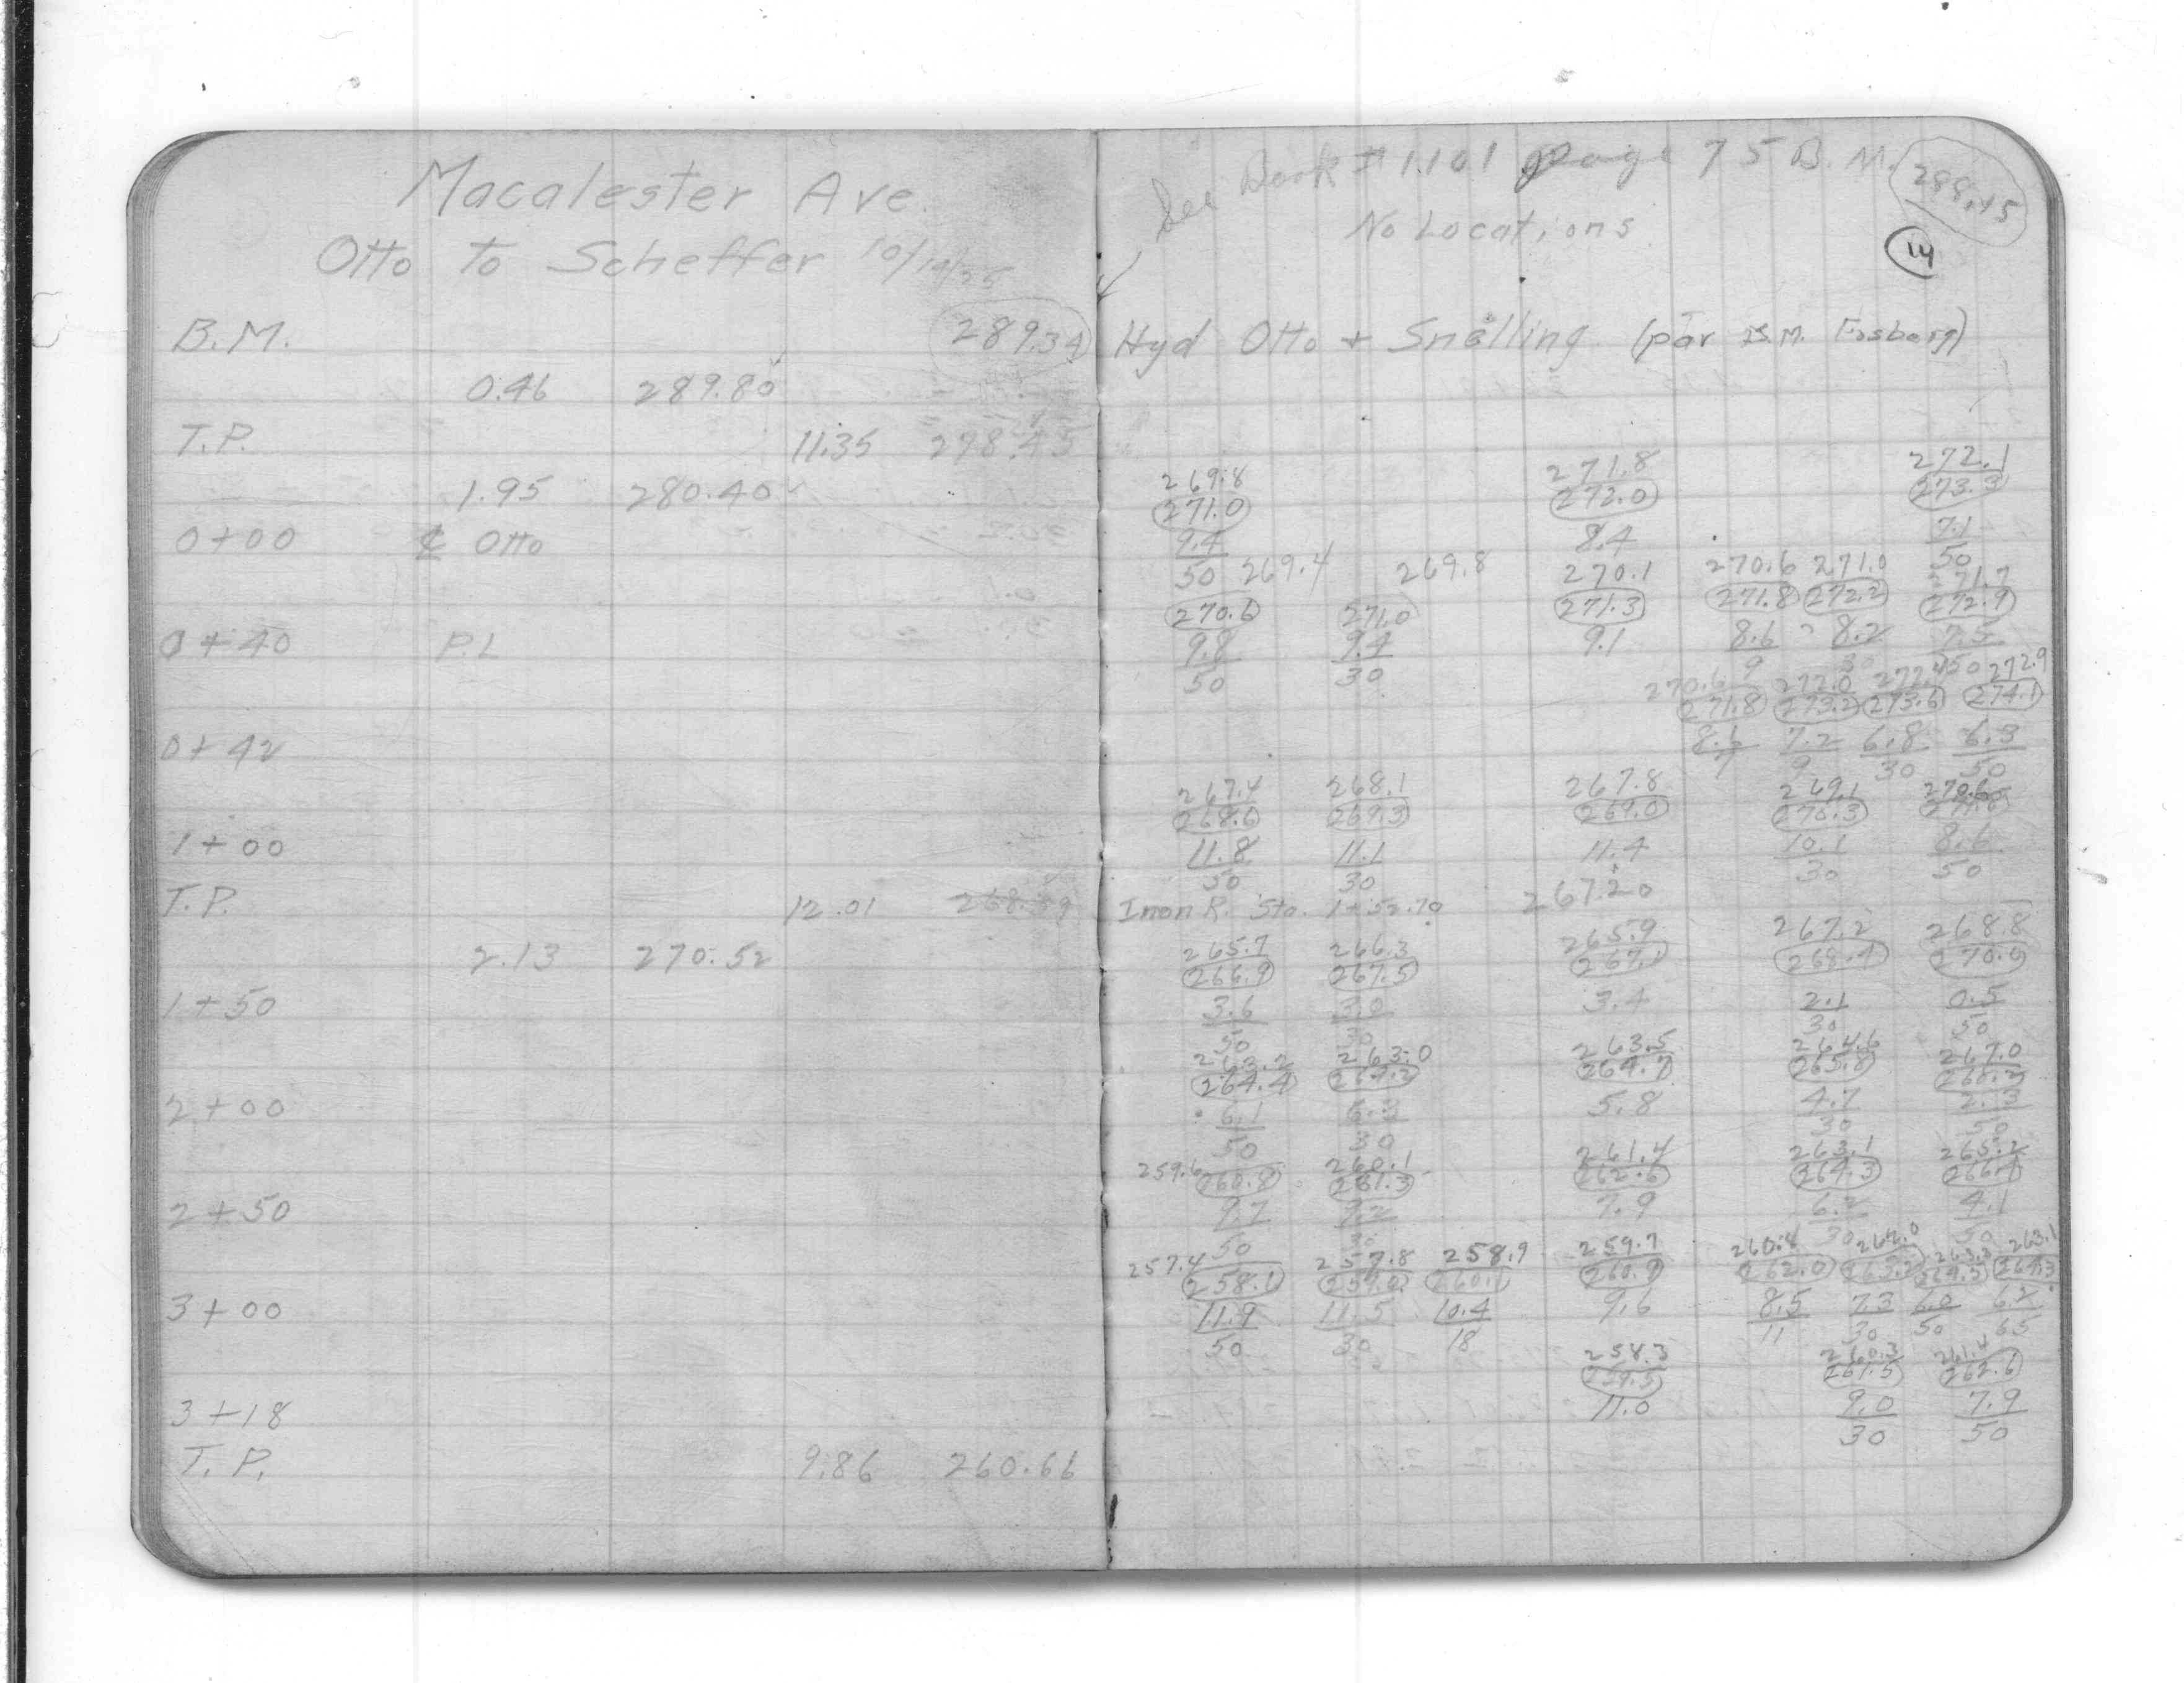 Macalester Ave.
Otto to Scheffer 10/19/
B.M. 289.34
0.46 289.80
T.P. 11.35 278.45
1.95 280.40
0+00 ℄ Otto
0+40 P.L
0+42
1+00
T.P. 12.01 268.39
2.13 270.52
1+50
2+00
2+50
3+00
3+18
T.P. 9.86 260.66
See Book #1101 page 75 B.M. 288.15
No Locations
14
Hyd Otto + Snelling (par B.M. Fosberg)
269.8 271.8 272.1
271.0 272.0 273.3
9.4 8.4 7.1
50 50
269.4 269.8 270.1 270.6 271.0 271.7
270.6 271.0 271.3 271.8 272.2 272.9
9.8 9.4 9.1 8.6 8.2 7.5
50 30 9 30 50
270.6 272.0 272.4 272.9
271.8 273.2 273.6 274.1
8.6 7.2 6.8 6.3
9 30 50
267.4 268.1 267.8 269.1 270.6
268.6 269.3 269.0 270.3 271.8
11.8 11.1 11.4 10.1 8.6
50 30 30 50
Iron R. Sta. 1+52.70 267.20
265.7 266.3 265.9 267.2 268.8
266.9 267.5 267.1 268.4 270.0
3.6 3.0 3.4 2.1 0.5
50 30 30 50
263.2 263.0 263.5 264.6 267.0
264.4 264.2 264.7 265.8 268.2
6.1 6.3 5.8 4.7 2.3
50 30 30 50
259.6 260.1 261.4 263.1 265.2
260.8 261.3 262.6 264.3 266.4
9.7 9.2 7.9 6.2 4.1
50 30 30 50
257.4 257.8 258.9 259.7 260.8 262.0 263.3 263.1
258.1 259.0 260.1 260.9 262.0 263.2 264.5 264.3
11.9 11.5 10.4 9.6 8.5 7.3 6.0 6.2
50 30 18 11 30 50 65
258.3 260.3 261.4
259.5 261.5 262.6
11.0 9.0 7.9
30 50